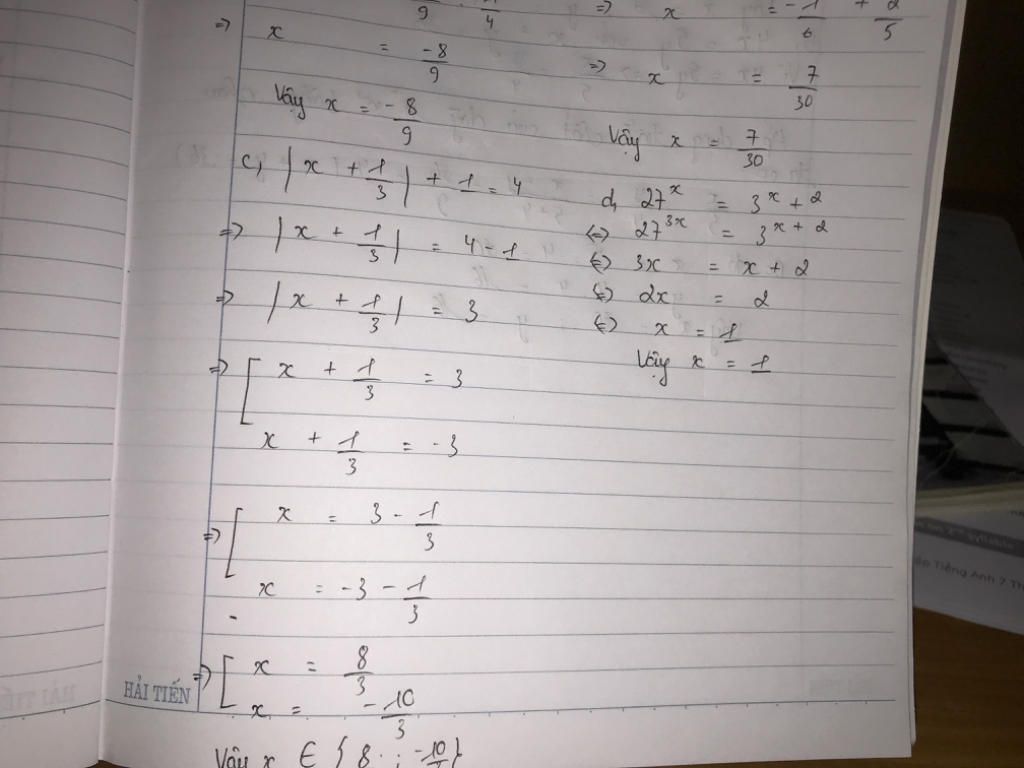 ⇒ x = -8/9
Vậy x = -8/9
c, |x + 1/3| + 1 = 4
⇒ |x + 1/3| = 4 - 1
⇒ |x + 1/3| = 3
⇒ [ x + 1/3 = 3
x + 1/3 = -3
⇒ [ x = 3 - 1/3
x = -3 - 1/3
⇒ [ x = 8/3
x = -10/3
Vậy x ∈ { 8 ; -10 }
⇒ x = -1/6 + 2/5
⇒ x = 7/30
Vậy x = 7/30
d, 27^x = 3^x + 2
⇔ 27^3x = 3^x + 2
⇔ 3x = x + 2
⇔ 2x = 2
⇔ x = 1
Vậy x = 1
HẢI TIẾN
Tiếng Anh 7